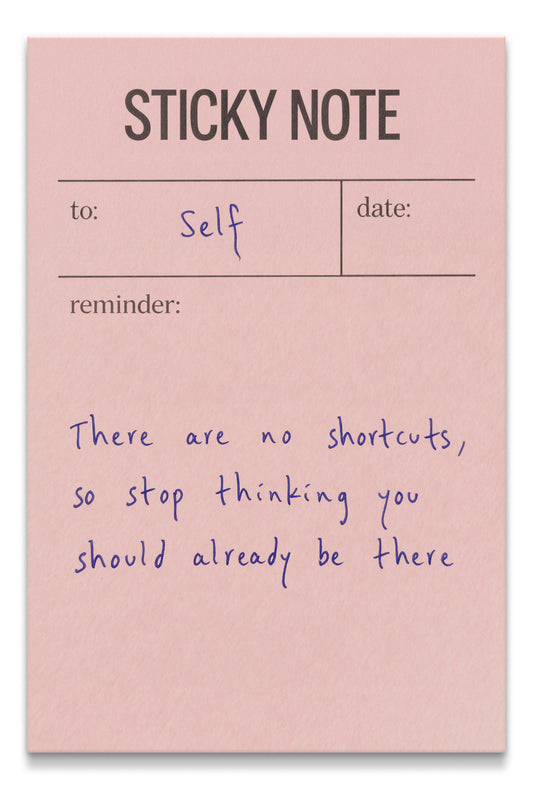 STICKY NOTE
to: Self date:
reminder:
There are no shortcuts,
so stop thinking you
should already be there